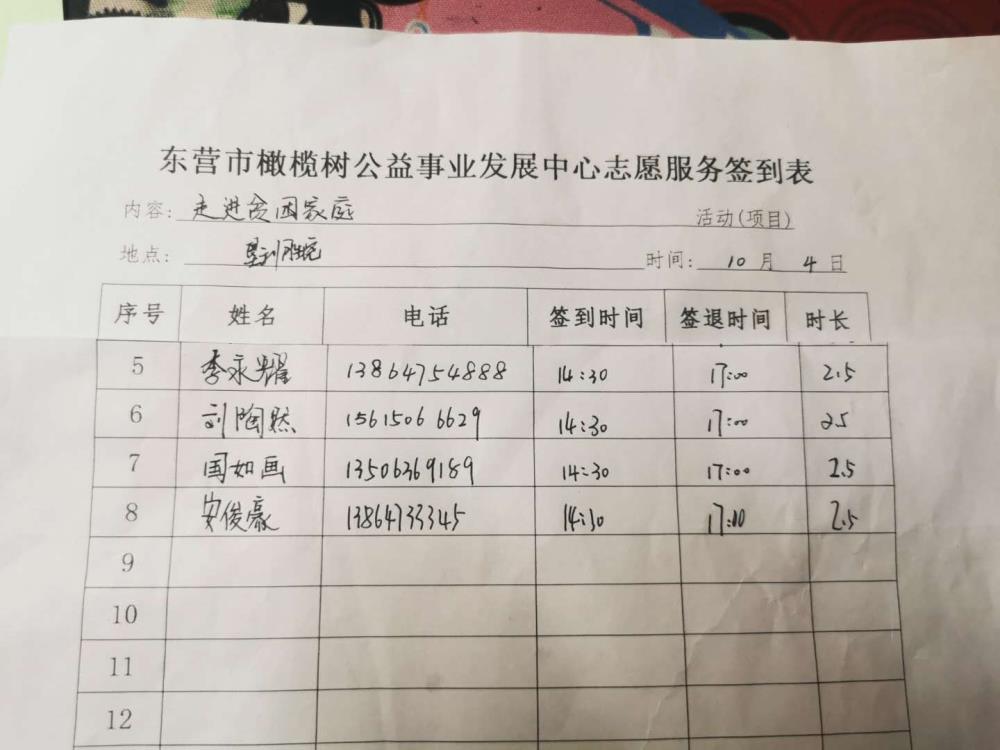 东营市橄榄树公益事业发展中心志愿服务签到表
内容: 走进贫困家庭 活动(项目)
地点: 时间: 10 月 4 日
序号 姓名 电话 签到时间 签退时间 时长
5 李永耀 13864754888 14:30 17:00 2.5
6 刘陶然 15615066629 14:30 17:00 25
7 国如画 13506369189 14:30 17:00 2.5
8 安俊豪 13864733345 14:30 17:00 2.5
9
10
11
12